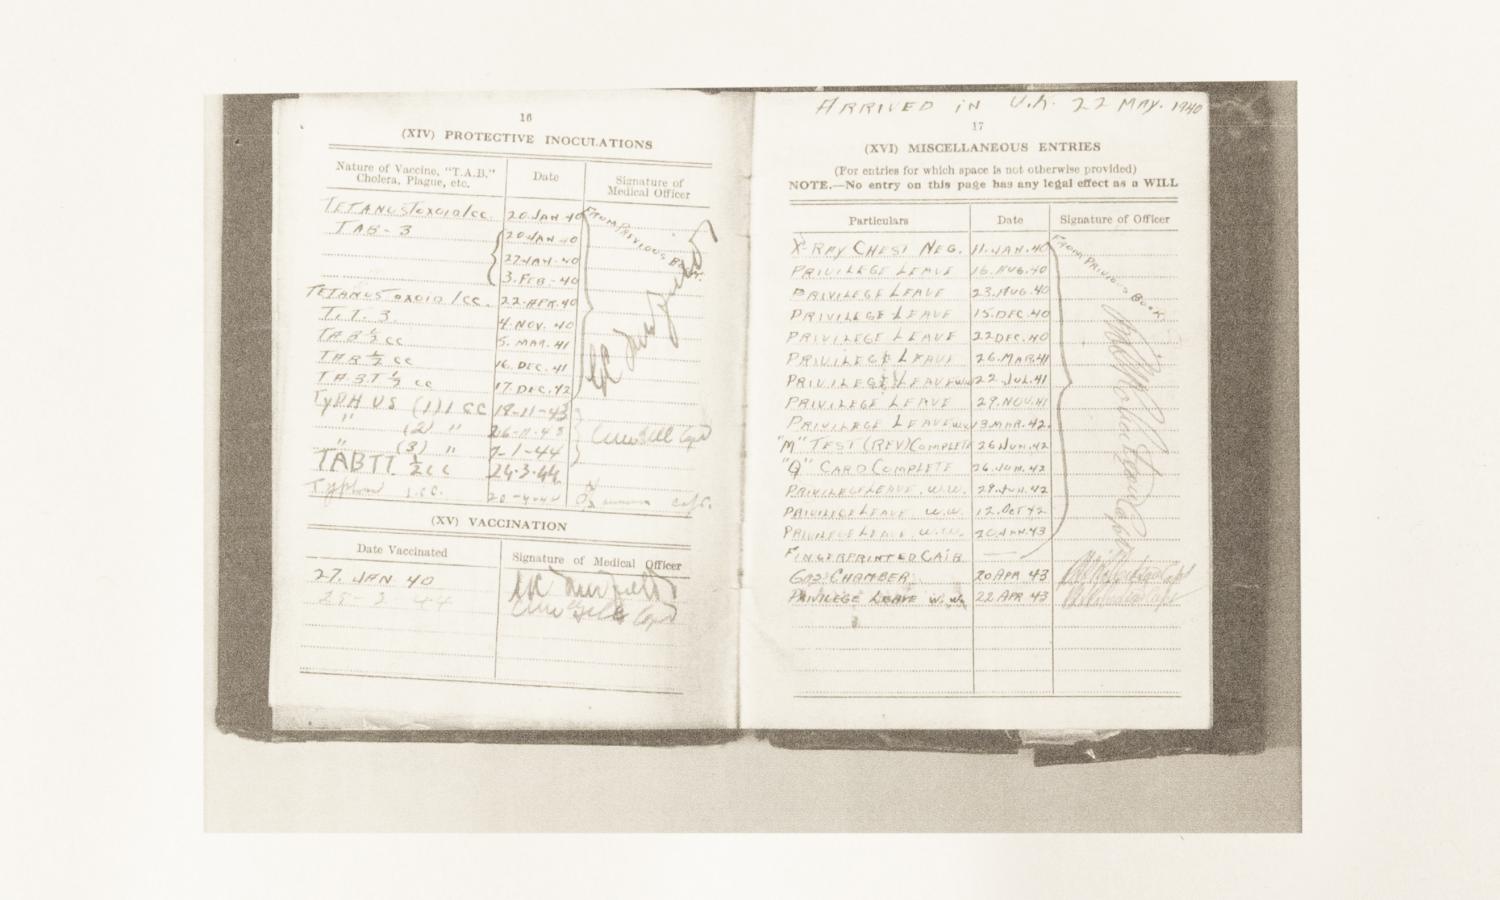 16
(XIV) PROTECTIVE INOCULATIONS
Nature of Vaccine, "T.A.B." Cholera, Plague, etc. Date Signature of Medical Officer
TETANUS TOXOID 1CC. 20 JAN 40 FROM PREVIOUS BOOK.
TAB - 3 20 JAN 40
27 JAN 40
3. FEB - 40
TETANUS TOXOID 1CC. 22. APR. 40
T.T. 3. 4. NOV. 40
TAB ½ CC 5. MAR. 41
TAB ½ CC 16. DEC. 41
TABT ½ CC 17. DEC. 42
TYPHUS (1) 1 CC 18-11-43
" (2) " 26-11-43
" (3) " 7-1-44
TABTT. ½ CC 24-3-44
1.CC. Capt.
(XV) VACCINATION
Date Vaccinated Signature of Medical Officer
27. JAN 40
Capt
ARRIVED IN U.K. 22 MAY. 1940
17
(XVI) MISCELLANEOUS ENTRIES
(For entries for which space is not otherwise provided)
NOTE.—No entry on this page has any legal effect as a WILL
Particulars Date Signature of Officer
X-RAY CHEST NEG. 11. JAN. 40 FROM PREVIOUS BOOK.
PRIVILEGE LEAVE 16. AUG. 40
PRIVILEGE LEAVE 23. AUG. 40
PRIVILEGE LEAVE 15. DEC. 40
PRIVILEGE LEAVE 22 DEC. 40
PRIVILEGE LEAVE 26. MAR 41
PRIVILEGE LEAVE W.W. 22. JUL. 41
PRIVILEGE LEAVE 29. NOV. 41
PRIVILEGE LEAVE W.W. 13. MAR. 42.
"M" TEST (REV) COMPLETE 26 JUN. 42
"Q" CARD COMPLETE 26. JUN. 42
PRIVILEGE LEAVE. W.W. 29. JUN. 42
PRIVILEGE LEAVE. W.W. 12. OCT 42
PRIVILEGE LEAVE. W.W. 20. JAN. 43
FINGERPRINTED —
GAS CHAMBER. 20 APR 43 Capt
PRIVILEGE LEAVE W.W. 22 APR 43 Capt